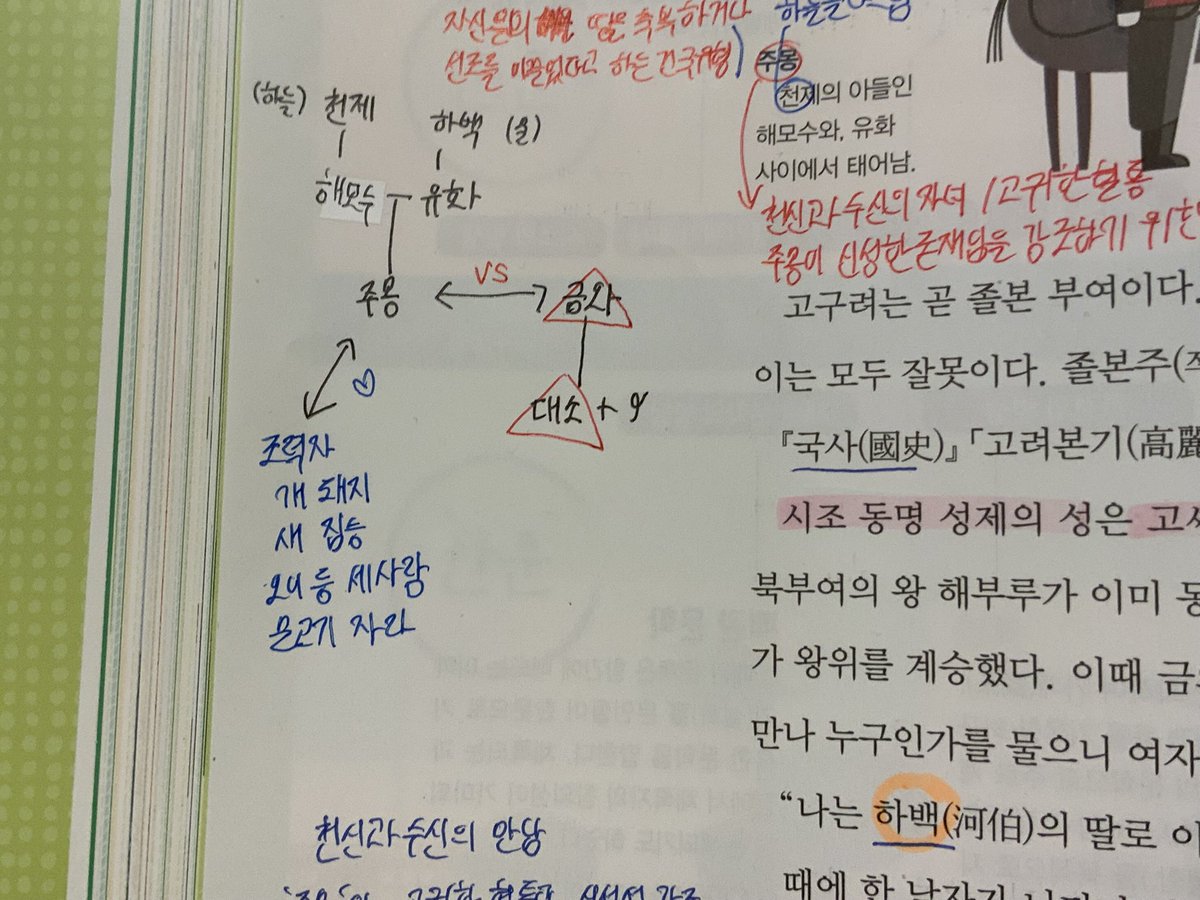 자신들의 딸은 축복하거나
선조를 이끌었다고 하는 건국유형)
주몽
천제의 아들인
해모수와, 유화
사이에서 태어남.
천신과 수신의 자녀 / 고귀한 혈통
주몽이 신성한 존재임을 강조하기 위한
(하늘) 천제
하백 (물)
해모수 유화
주몽 VS 금와
대소 +
조력자
개 돼지
새 짐승
오이 등 세사람
물고기 자라
고구려는 곧 졸본 부여이다.
이는 모두 잘못이다. 졸본주(
『국사(國史)』「고려본기(高麗
시조 동명 성제의 성은 고씨
북부여의 왕 해부루가 이미 동
가 왕위를 계승했다. 이때 금
만나 누구인가를 물으니 여자
“나는 하백(河伯)의 딸로 이
때에 한 남자가
천신과 수신의 만남